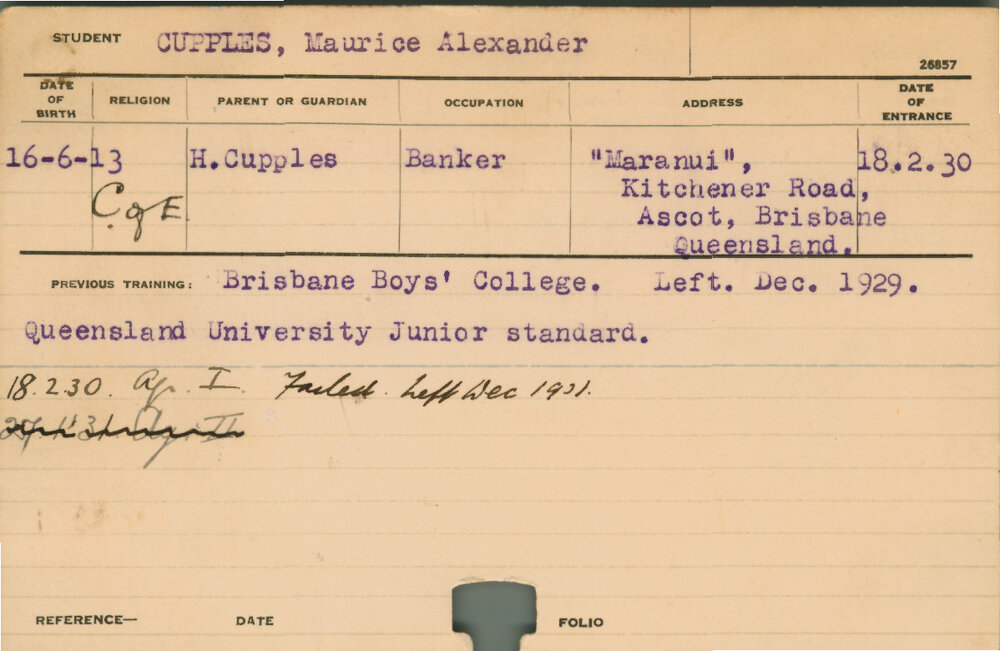 STUDENT CUPPLES, Maurice Alexander
26857
DATE OF BIRTH RELIGION PARENT OR GUARDIAN OCCUPATION ADDRESS DATE OF ENTRANCE
16-6-13 C of E H.Cupples Banker "Maranui", 18.2.30
Kitchener Road,
Ascot, Brisbane
Queensland.
PREVIOUS TRAINING: Brisbane Boys' College. Left. Dec. 1929.
Queensland University Junior standard.
18.2.30. Ag. I. Failed. Left Dec 1931.
Ag. II
REFERENCE— DATE FOLIO